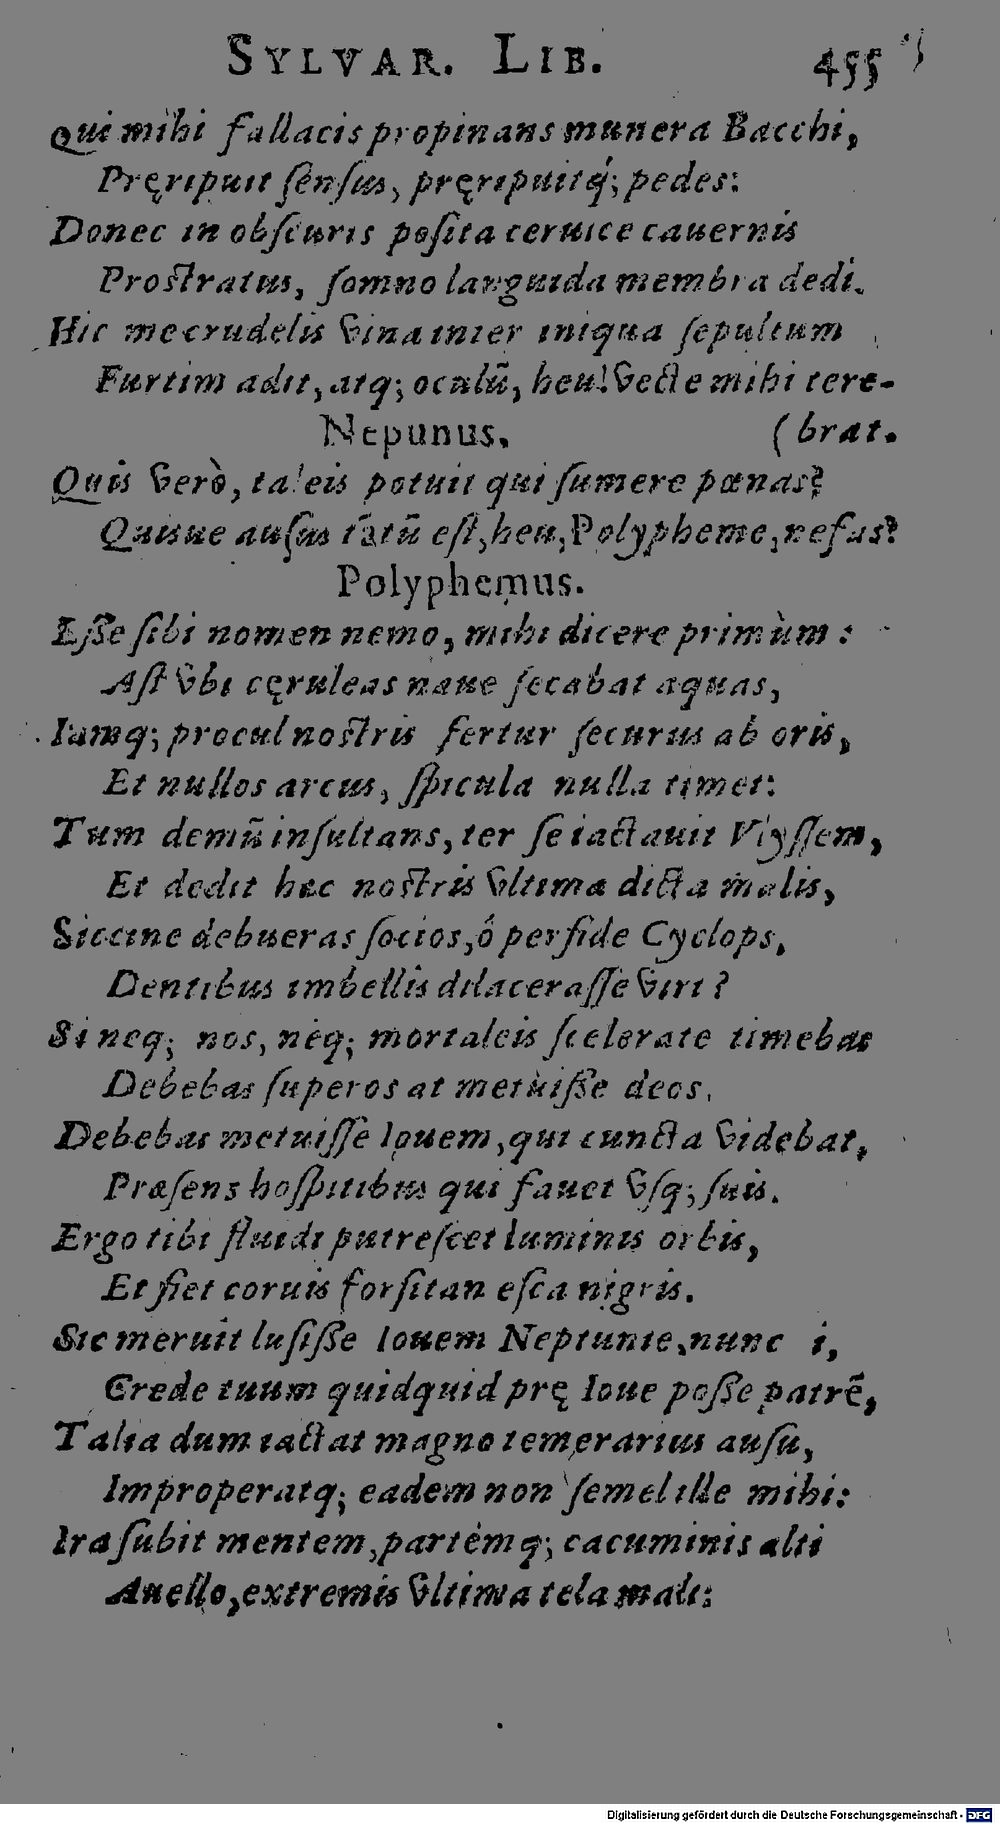 SYLVAR. LIB. 455
Qui mihi fallacis propinans munera Bacchi,
Pręripuit ſenſus, pręripuitq́; pedes:
Donec in obſcuris poſita ceruice cauernis
Proſtratus, ſomno languida membra dedi.
Hic me crudelis vina inter iniqua ſepultum
Furtim adit, atq; oculũ, heu! vecte mihi tere-
Nepunus. (brat.
Quis verò, taleis potuit qui ſumere pœnas?
Quisue auſus tãtũ eſt, heu, Polypheme, nefas?
Polyphemus.
Eſſe ſibi nomen nemo, mihi dicere primùm:
Aſt vbi cęruleas naue ſecabat aquas,
Iamq; procul noſtris fertur ſecurus ab oris,
Et nullos arcus, ſpicula nulla timet:
Tum demũ inſultans, ter ſe iactauit Vlyſſem,
Et dedit hæc noſtris vltima dicta malis,
Siccine debueras ſocios, ô perfide Cyclops,
Dentibus imbellis dilaceraſſe viri?
Si neq; nos, neq; mortaleis ſcelerate timebas
Debebas ſuperos at metuiſſe deos.
Debebas metuiſſe Iouem, qui cuncta videbat,
Præſens hoſpitibus qui fauet vſq; ſuis.
Ergo tibi fluidi putreſcet luminis orbis,
Et fiet coruis forſitan eſca nigris.
Sic meruit luſiſſe Iouem Neptunie, nunc i,
Crede tuum quidquid prę Ioue poſſe patrẽ,
Talia dum iactat magno temerarius auſu,
Improperatq; eadem non ſemel ille mihi:
Ira ſubit mentem, partémq; cacuminis alti
Auello, extremis vltima tela mali:
Digitalisierung gefördert durch die Deutsche Forschungsgemeinschaft - DFG